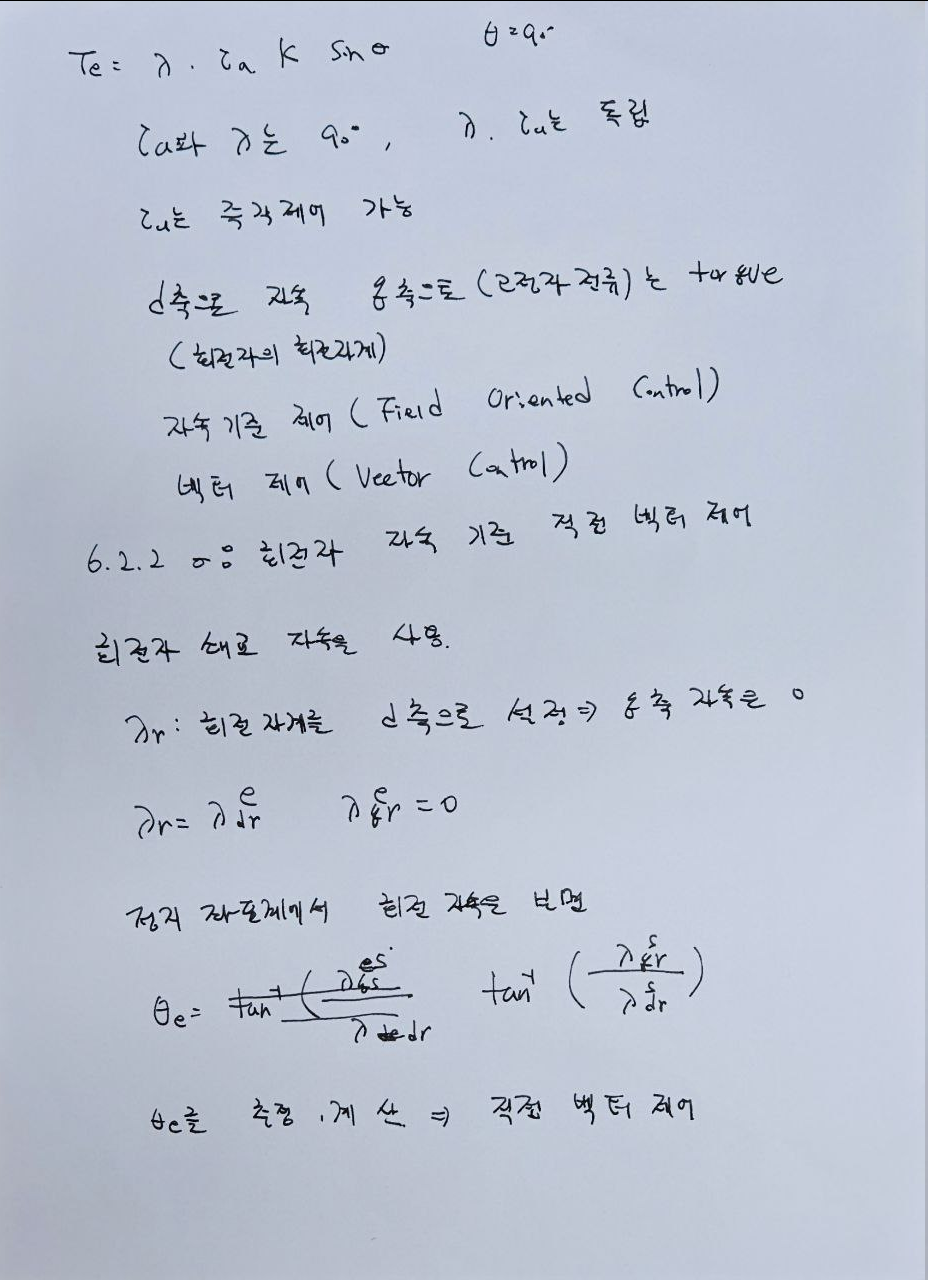 Te = λ · ia K sinθ θ = 90°
ia와 λ는 90°, λ. ia는 독립
ia는 즉각제어 가능
d축으로 자속 q축으로 (고정자 전류)는 torque
(회전자의 회전자계)
자속 기준 제어 (Field Oriented Control)
벡터 제어 (Vector Control)
6.2.2 회전자 자속 기준 직접 벡터 제어
회전자 쇄교 자속을 사용.
λr: 회전 자계를 d축으로 설정 ⇒ q축 자속은 0
λr = λ^e_dr λ^e_qr = 0
정지 좌표계에서 회전 자속을 보면
θe = tan⁻¹ (λ^s_qr / λ^s_dr)
θe를 측정, 계산 ⇒ 직접 벡터 제어